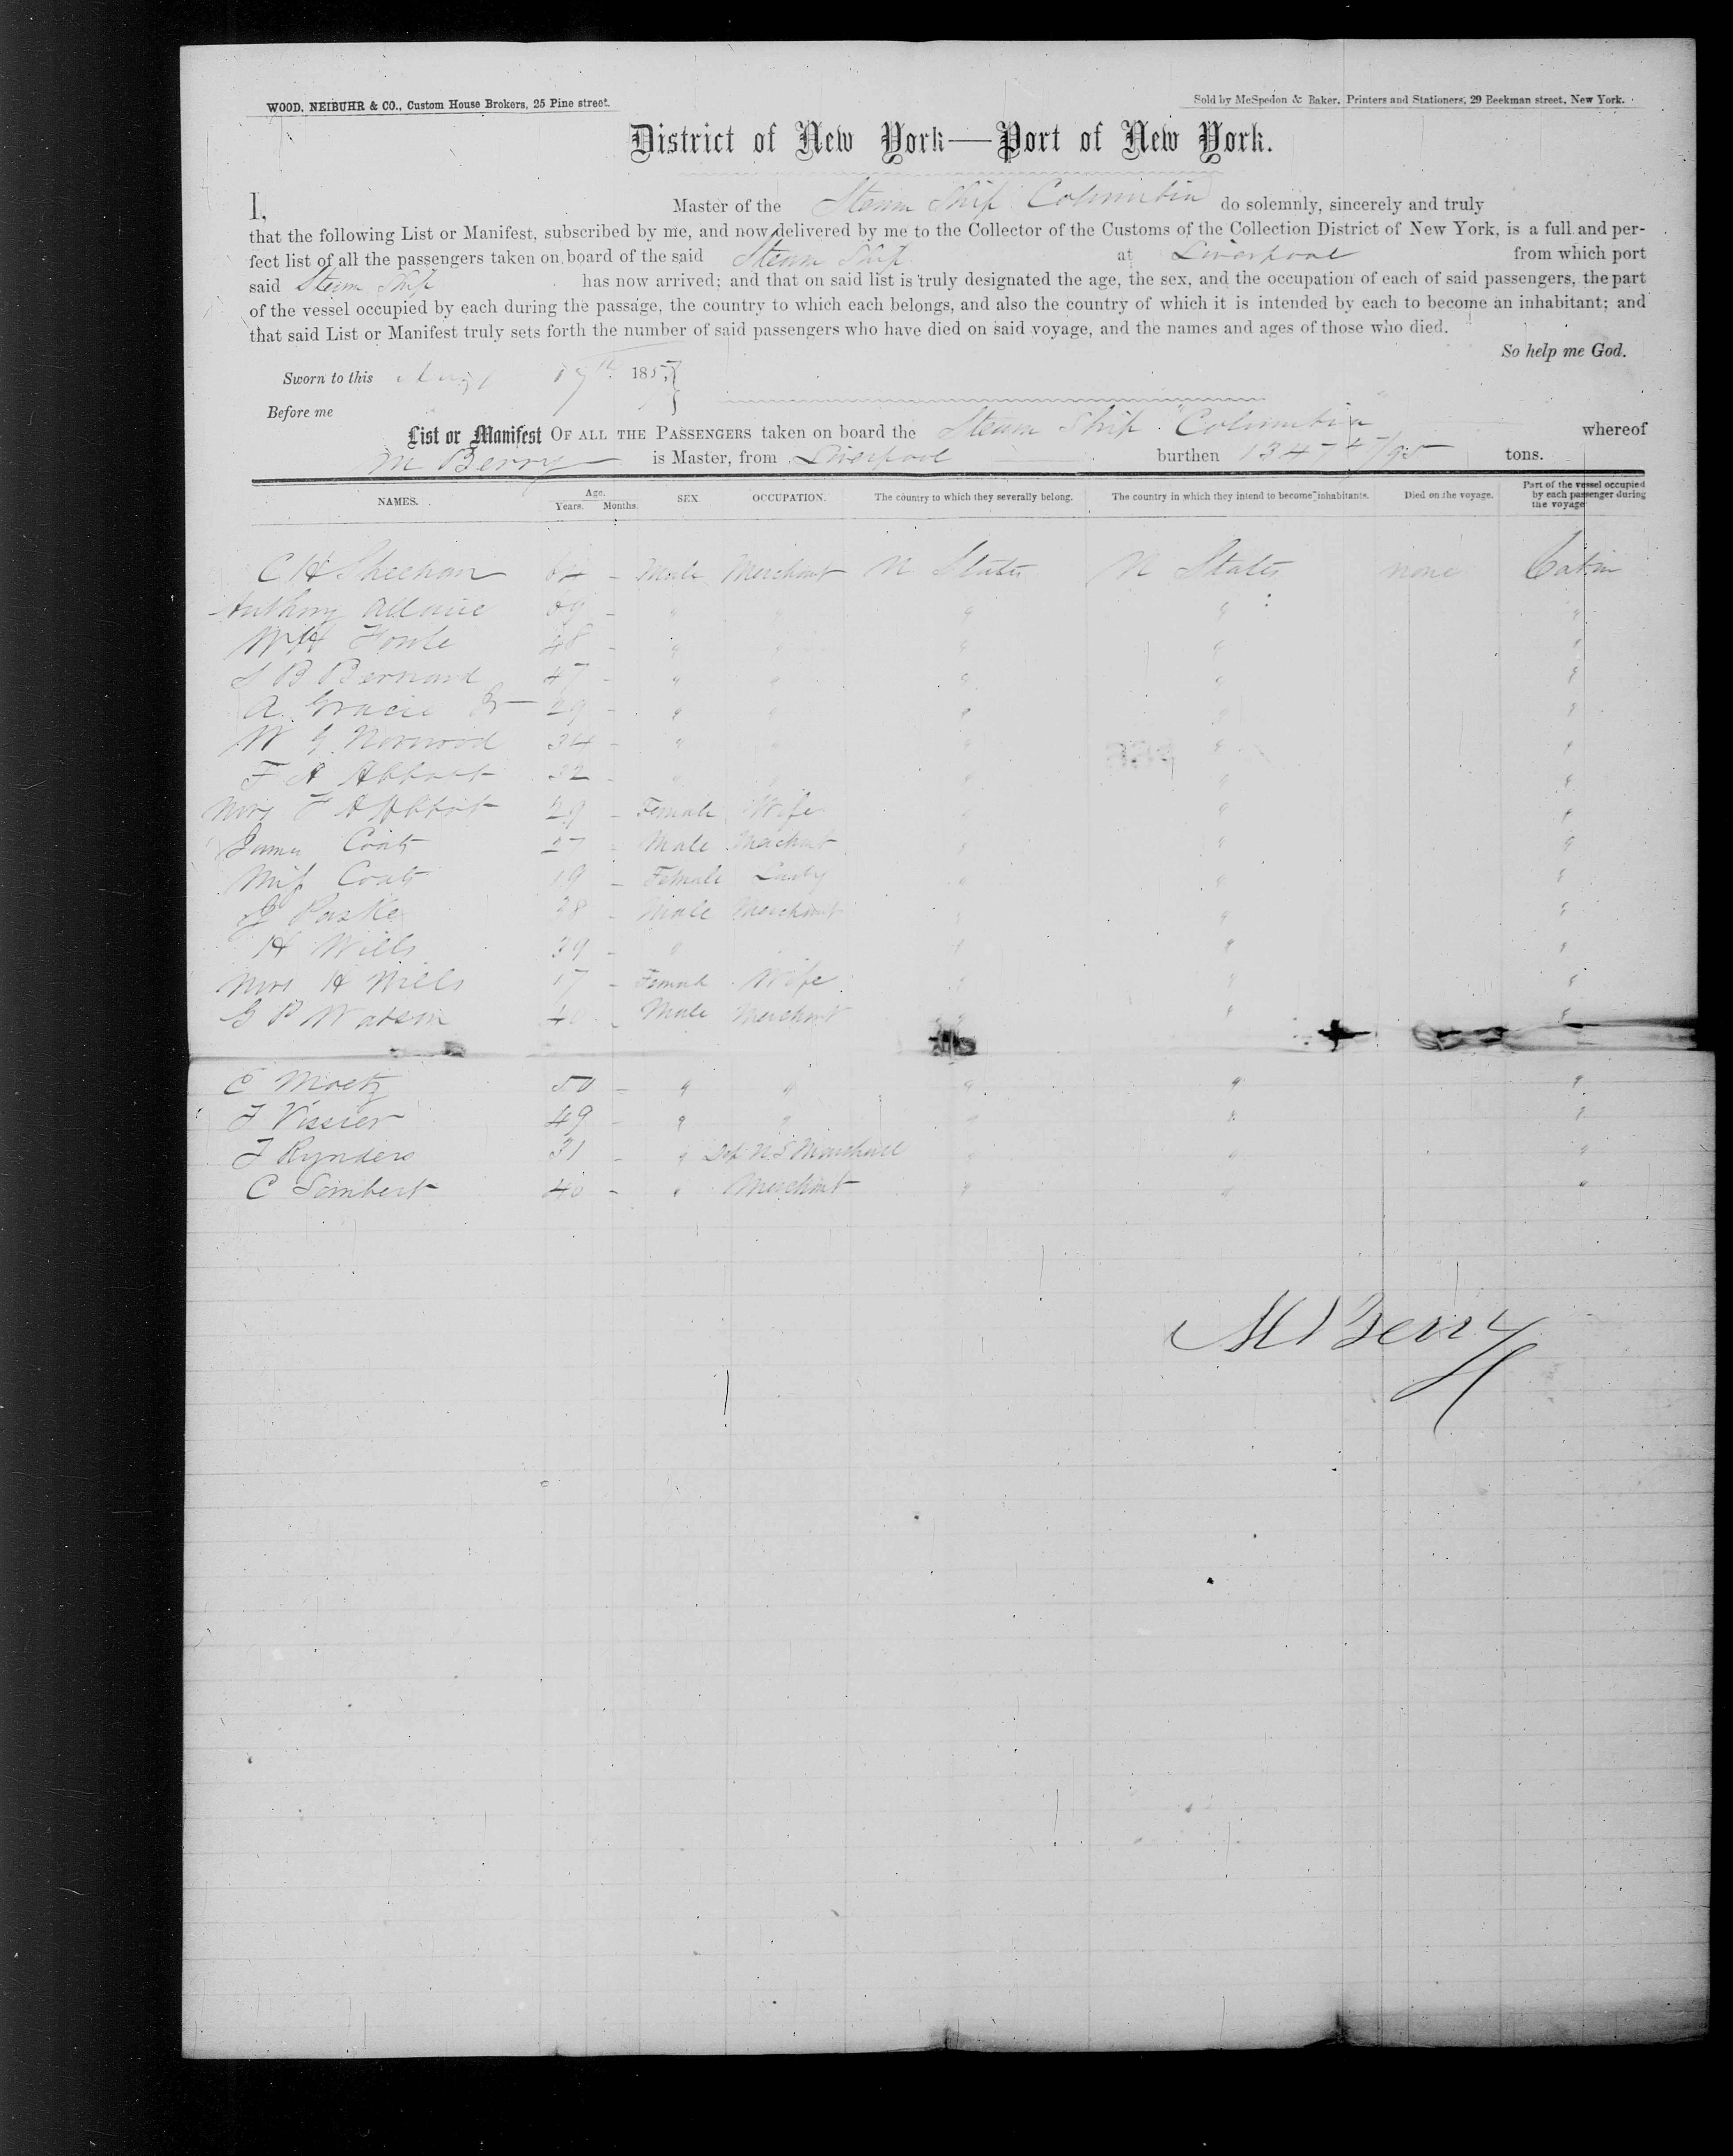 WOOD, NEIBUHR & CO., Custom House Brokers, 25 Pine street.
Sold by McSpedon & Baker, Printers and Stationers, 29 Beekman street, New York.
District of New York—Port of New York.
I, Master of the Steam Ship Columbia do solemnly, sincerely and truly
that the following List or Manifest, subscribed by me, and now delivered by me to the Collector of the Customs of the Collection District of New York, is a full and per-
fect list of all the passengers taken on board of the said Steam Ship at Liverpool from which port
said Steam Ship has now arrived; and that on said list is truly designated the age, the sex, and the occupation of each of said passengers, the part
of the vessel occupied by each during the passage, the country to which each belongs, and also the country of which it is intended by each to become an inhabitant; and
that said List or Manifest truly sets forth the number of said passengers who have died on said voyage, and the names and ages of those who died.
So help me God.
Sworn to this 185
Before me
List or Manifest OF ALL THE PASSENGERS taken on board the Steam Ship "Columbia" whereof
M Berry is Master, from Liverpool burthen 1347 /95 tons.
NAMES. Age. Years. Months. SEX OCCUPATION. The country to which they severally belong. The country in which they intend to become inhabitants. Died on the voyage. Part of the vessel occupied by each passenger during the voyage
C H Sheehan - Male Merchant U States U States none Cabin
Anthony 69 - " " " " "
W H Fowle 48 - " " " " "
S B Bernard 47 - " " " " "
A. Gracie Jr 29 - " " " " "
W G Norwood 34 - " " " " "
F A Abbott 32 - " " " " "
Mrs F A Abbott 29 - Female Wife " " "
James Coats 27 - Male Merchant " " "
Miss Coats 19 - Female Lady " " "
38 - Male Merchant " " "
H Wills 39 - " " " " "
Mrs H Wills 17 - Female Wife " " "
G P Watson 40 - Male Merchant " " "
E Moetz 50 - " " " " "
F Vissier 49 - " " " " "
F Rynders 31 - " Dep U.S Marshall " " "
C Limbert 40 - " Merchant " " "
M Berry